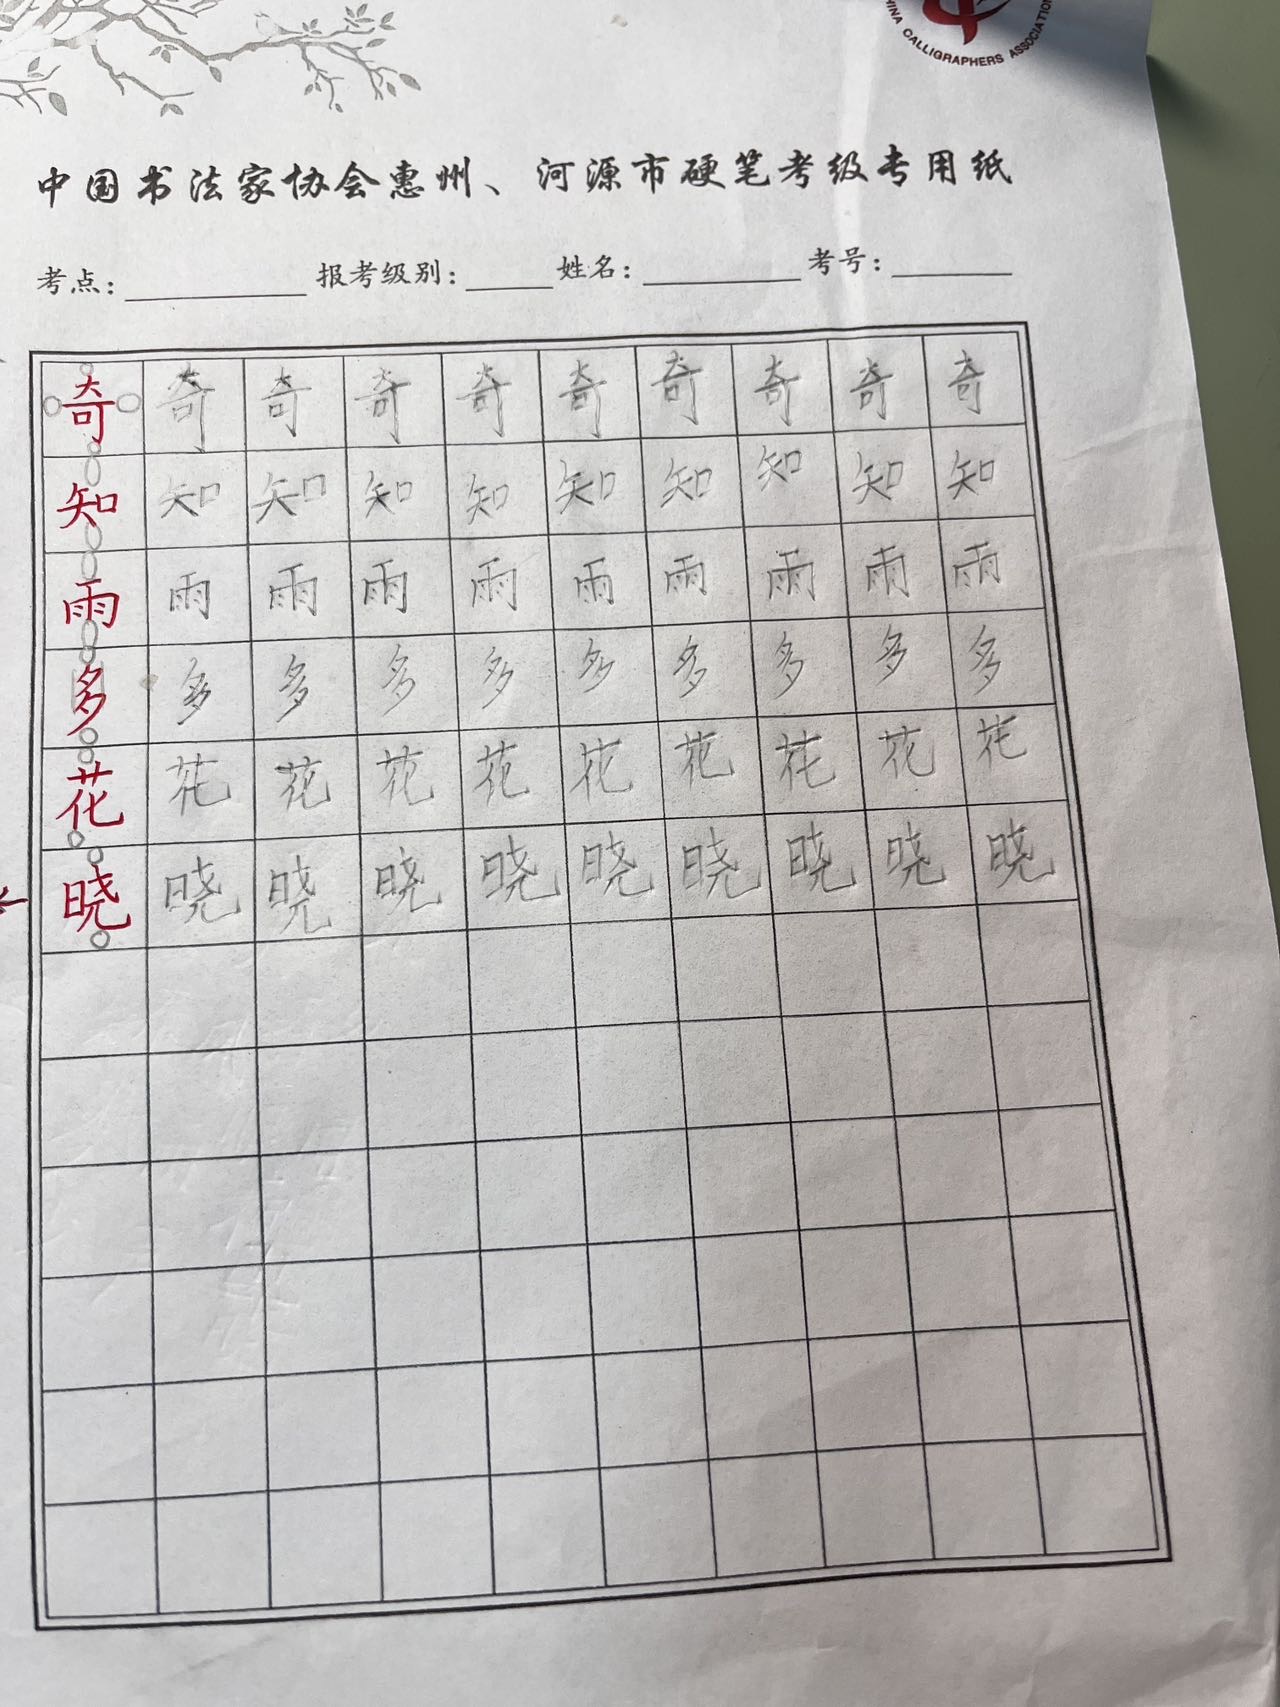 CHINA CALLIGRAPHERS ASSOCIATION
中国书法家协会惠州、河源市硬笔考级专用纸
考点： 报考级别： 姓名： 考号：
奇奇奇奇奇奇奇奇奇奇
知知知知知知知知知知
雨雨雨雨雨雨雨雨雨雨
多多多多多多多多多多
花花花花花花花花花花
晓晓晓晓晓晓晓晓晓晓